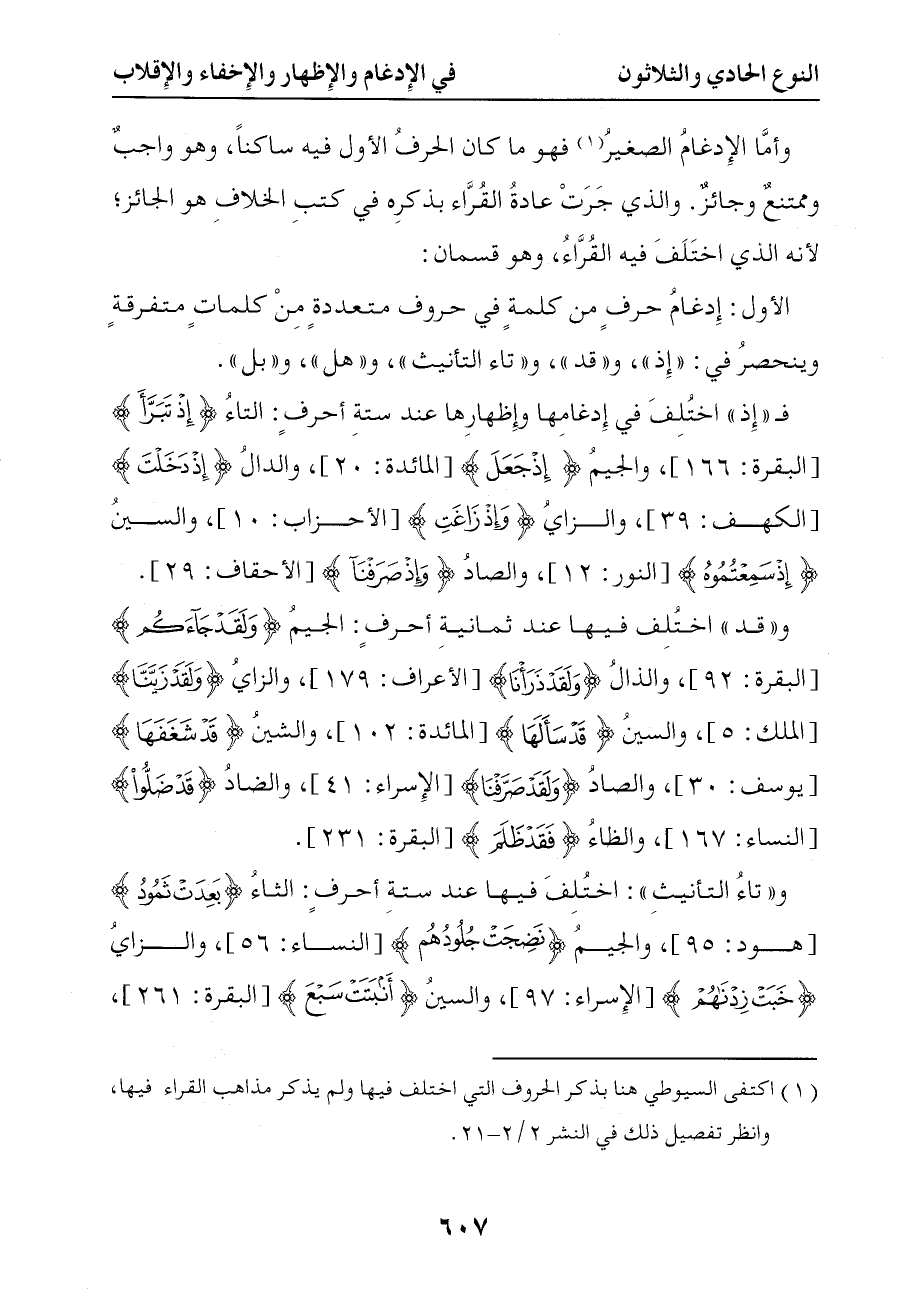 النوع الحادي والثلاثون في الإدغام والإظهار والإخفاء والإقلاب
وأمَّا الإدغامُ الصغيرُ(١) فهو ما كان الحرفُ الأول فيه ساكناً، وهو واجبٌ
وممتنعٌ وجائزٌ. والذي جَرَتْ عادةُ القُرَّاء بذكرِه في كتبِ الخلافِ هو الجائز؛
لأنه الذي اختَلَفَ فيه القُرَّاءُ، وهو قسمان:
الأول: إدغامُ حرفٍ من كلمةٍ في حروف متعددةٍ مِنْ كلماتٍ متفرقةٍ
وينحصرُ في: «إذ»، و«قد»، و«تاء التأنيث»، و«هل»، و«بل».
فـ«إذ» اختُلفَ في إدغامها وإظهارها عند ستة أحرفٍ: التاءُ ﴿إِذْ تَبَرَّأَ﴾
[البقرة: ١٦٦]، والجيمُ ﴿إِذْ جَعَلَ﴾ [المائدة: ٢٠]، والدالُ ﴿إِذْ دَخَلْتَ﴾
[الكهف: ٣٩]، والزايُ ﴿وَإِذْ زَاغَتِ﴾ [الأحزاب: ١٠]، والسينُ
﴿إِذْ سَمِعْتُمُوهُ﴾ [النور: ١٢]، والصادُ ﴿وَإِذْ صَرَفْنَآ﴾ [الأحقاف: ٢٩].
و«قد» اختُلف فيها عند ثمانية أحرفٍ: الجيمُ ﴿وَلَقَدْ جَآءَكُم﴾
[البقرة: ٩٢]، والذالُ ﴿وَلَقَدْ ذَرَأْنَا﴾ [الأعراف: ١٧٩]، والزايُ ﴿وَلَقَدْ زَيَّنَّا﴾
[الملك: ٥]، والسينُ ﴿قَدْ سَأَلَهَا﴾ [المائدة: ١٠٢]، والشينُ ﴿قَدْ شَغَفَهَا﴾
[يوسف: ٣٠]، والصادُ ﴿وَلَقَدْ صَرَّفْنَا﴾ [الإسراء: ٤١]، والضادُ ﴿قَدْ ضَلُّوا۟﴾
[النساء: ١٦٧]، والظاءُ ﴿فَقَدْ ظَلَمَ﴾ [البقرة: ٢٣١].
و«تاءُ التأنيث»: اختُلفَ فيها عند ستة أحرفٍ: الثاءُ ﴿بَعِدَتْ ثَمُودُ﴾
[هود: ٩٥]، والجيمُ ﴿نَضِجَتْ جُلُودُهُم﴾ [النساء: ٥٦]، والزايُ
﴿خَبَتْ زِدْنَٰهُمْ﴾ [الإسراء: ٩٧]، والسينُ ﴿أَنۢبَتَتْ سَبْعَ﴾ [البقرة: ٢٦١]،
(١) اكتفى السيوطي هنا بذكر الحروف التي اختلف فيها ولم يذكر مذاهب القراء فيها،
وانظر تفصيل ذلك في النشر ٢/٢-٢١.
٦٠٧